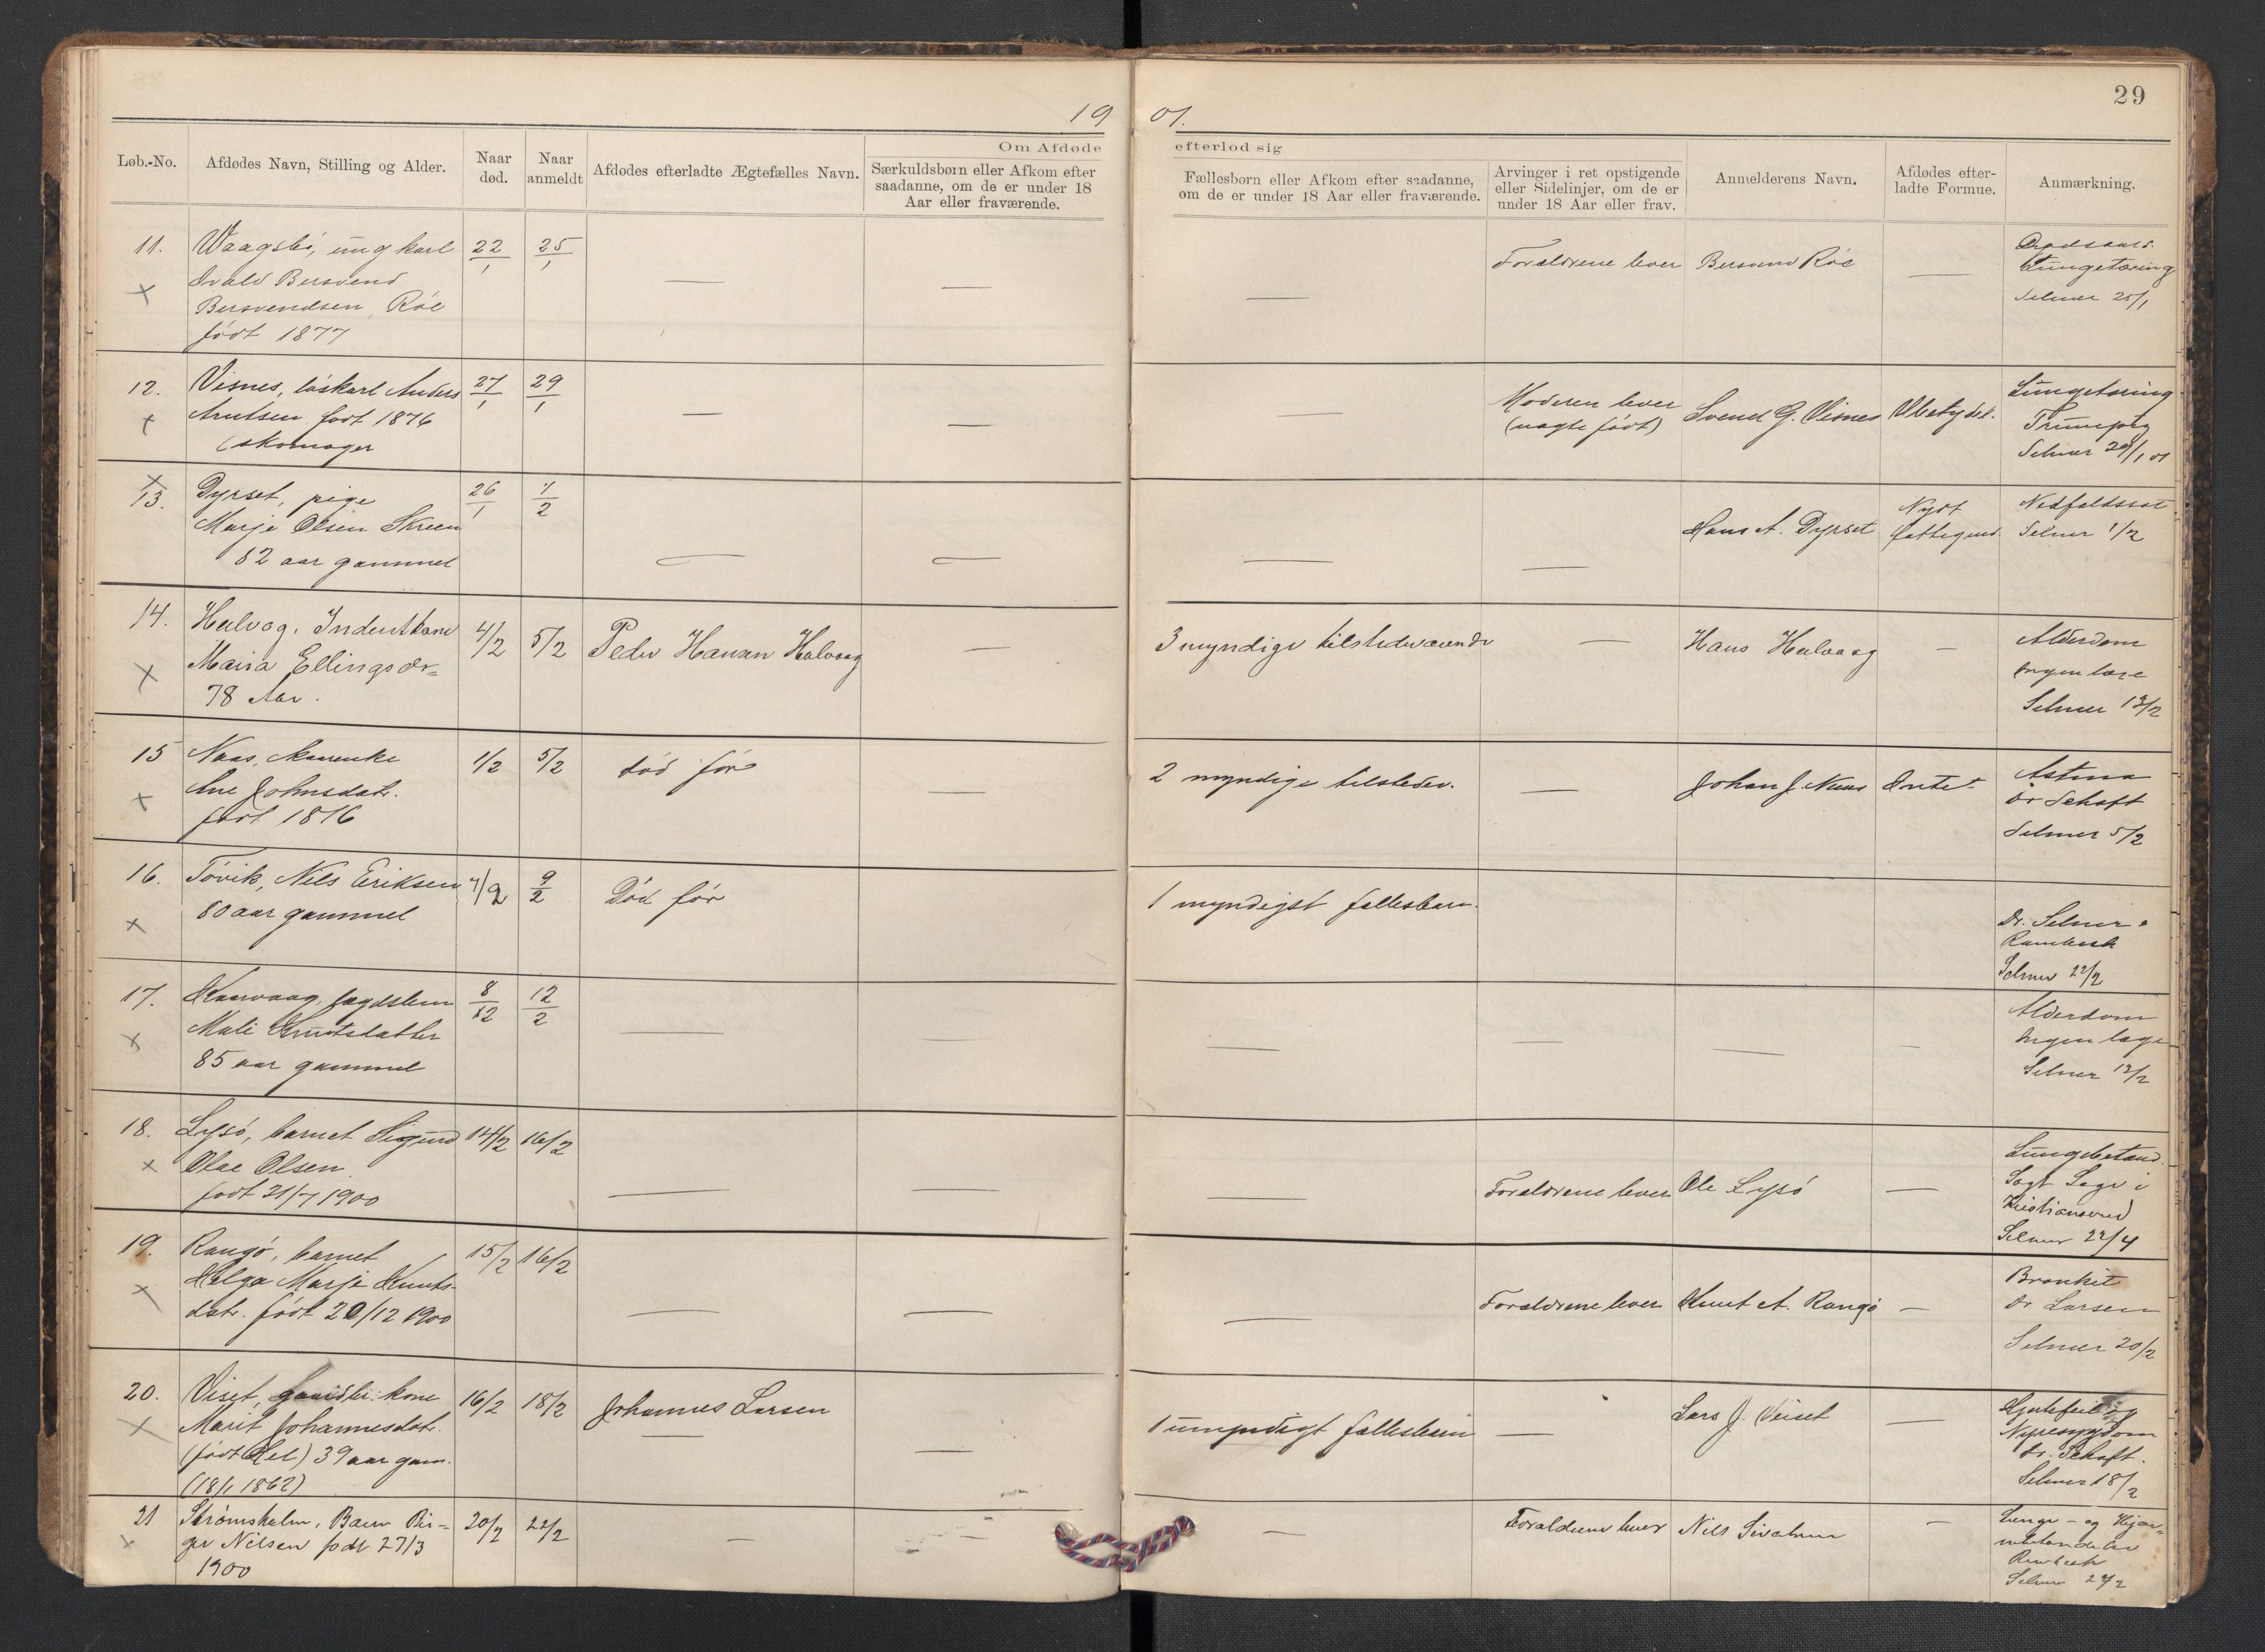 29
19 01.
Om Afdøde efterlod sig
Løb.-No.
Afdødes Navn, Stilling og Alder.
Naar død.
Naar anmeldt
Afdødes efterladte Ægtefælles Navn.
Særkuldsbørn eller Afkom efter saadanne, om de er under 18 Aar eller fraværende.
Fællesbørn eller Afkom efter saadanne, om de er under 18 Aar eller fraværende.
Arvinger i ret opstigende eller Sidelinjer, om de er under 18 Aar eller frav.
Anmelderens Navn.
Afdødes efterladte Formue.
Anmærkning.
11. Waagsbø, ungkarl 22/1 25/1
Bersvend
Bersvendsen Röe
født 1877
— — — Forældrene lever Bersvend Röe —
Lungetæring
Selmer 25/1
12. Visnes, løskarl Anders 27/1 29/1
Knutsen født 1876
(skomager
— — — Moderen lever
(uægte født)
Svend G. Visnes Ubetydel.
Lungetæring
Selmer 29/1 01
13. Dyrset, pige 26/1 1/2
Marje Olsen Skreen
82 aar gammel
— — — — Hans A. Dyrset Nydt
fattigund.
Nedfaldssot
Selmer 1/2
14. Halvog, Inderstkone 4/2 5/2 Peder Hansen Halvaag —
Maria Ellingsdr=
78 Aar.
3 myndige tilstedeværende — Hans Halvaag —
Alderdom
ingen læge
Selmer 13/2
15 Naas, Maurenke 1/2 5/2 død før —
Ane Johnsdatr.
født 1816
2 myndige tilstedev. — Johan J. Naas Intet
Astma
Dr Schaft
Selmer 5/2
16. Tövik, Nils Eriksen 7/2 9/2 Död før
80 aar gammel
1 myndigt fællesbarn.
Dr. Selmer
Selmer 22/2
17. Kanvaag, lægdslem 8/2 12/2
Mali Knutsdatter
85 aar gammel
— — — — — —
Alderdom
Ingen læge
Selmer 12/2
18. Lysö, barnet Sigurd 14/2 16/2
Olae Olsen
født 21/7 1900
— — — Forældrene lever Ole Lysö —
Lungebetænd.
Søgt Læge i
Kristiansund
Selmer 22/4
19. Rangö, barnet 15/2 16/2
Helga Marje Knuts-
datr. født 20/12 1900
— — — Forældrene lever Knut A. Rangö —
Bronkit
Dr Larsen
Selmer 20/2
20. Viset, gaardbr. kone 16/2 18/2 Johannes Larsen
Marit Johannesdatr.
(født Hel) 39 aar gam.
(18/1 1862)
— — 1 umyndigt fællesbarn — Lars J. Veiset —
Hjertefeil og
Nyresygdom
Dr. Schaft.
Selmer 18/2
21 Strømsholm, Barn Bir= 20/2 22/2
ger Nilsen født 27/3
1900
— — — Forældrene lever Nils —
Lunge- og Hjer=
nebetændelse
Selmer 27/2